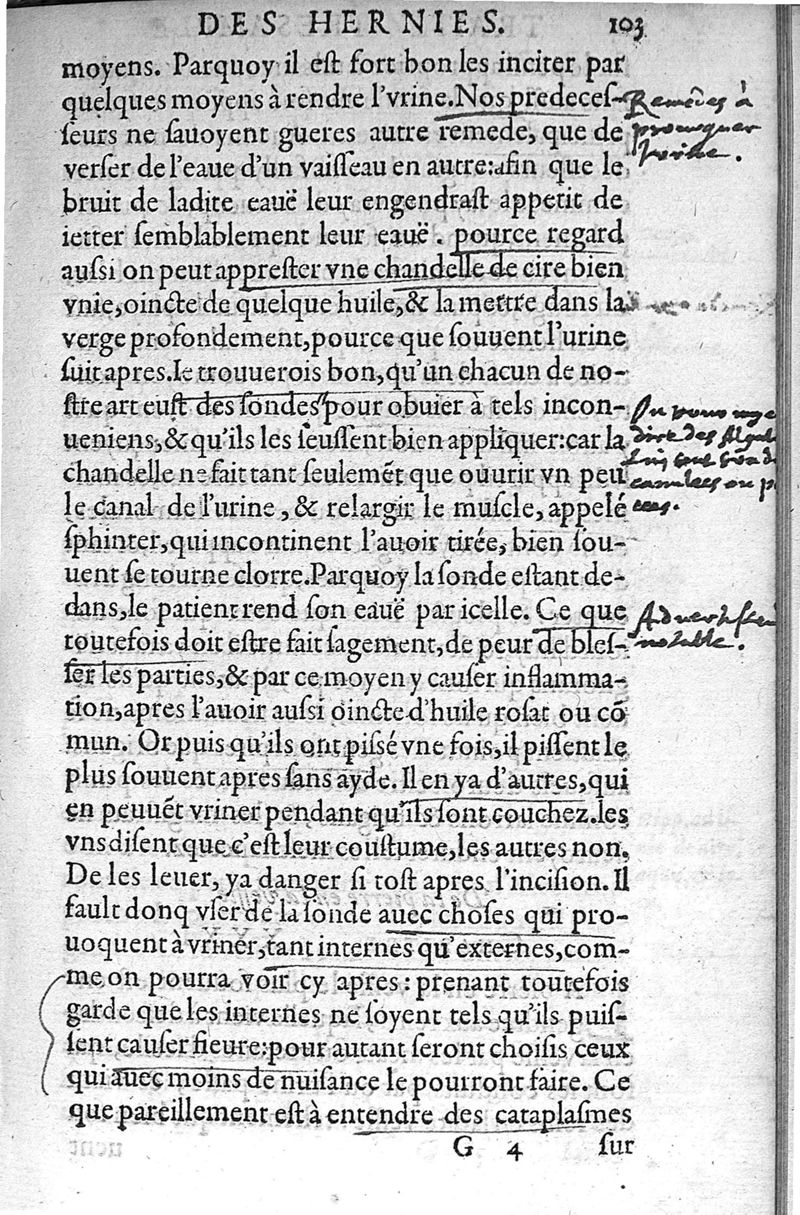 DES HERNIES. 103
moyens. Parquoy il eſt fort bon les inciter par
quelques moyens à rendre l'vrine. Nos predeceſ-
ſeurs ne ſauoyent gueres autre remede, que de
verſer de l'eaue d'un vaiſſeau en autre: afin que le
bruit de ladite eauë leur engendraſt appetit de
ietter ſemblablement leur eauë. pource regard
auſsi on peut appreſter vne chandelle de cire bien
vnie, oincte de quelque huile, & la mettre dans la
verge profondement, pource que ſouuent l'urine
ſuit apres. Ie trouuerois bon, qu'un chacun de no-
ſtre art euſt des ſondes pour obuier à tels incon-
ueniens, & qu'ils les ſeuſſent bien appliquer: car la
chandelle ne fait tant ſeulemẽt que ouurir vn peu
le canal de l'urine, & relargir le muſcle, appelé
ſphinter, qui incontinent l'auoir tirée, bien ſou-
uent ſe tourne clorre. Parquoy la ſonde eſtant de-
dans, le patient rend ſon eauë par icelle. Ce que
toutefois doit eſtre fait ſagement, de peur de bleſ-
ſer les parties, & par ce moyen y cauſer inflamma-
tion, apres l'auoir auſsi oincte d'huile roſat ou cõ
mun. Or puis qu'ils ont piſſé vne fois, il piſſent le
plus ſouuent apres ſans ayde. Il en ya d'autres, qui
en peuuẽt vriner pendant qu'ils ſont couchez. les
vns diſent que c'eſt leur couſtume, les autres non.
De les leuer, ya danger ſi toſt apres l'inciſion. Il
fault donq vſer de la ſonde auec choſes qui pro-
uoquent à vriner, tant internes qu'externes, com-
me on pourra voir cy apres: prenant toutefois
garde que les internes ne ſoyent tels qu'ils puiſ-
ſent cauſer fieure: pour autant ſeront choiſis ceux
qui auec moins de nuiſance le pourront faire. Ce
que pareillement eſt à entendre des cataplaſmes
G 4 ſur
Remedes à
prouoquer
l'urine.
dire des
notable.